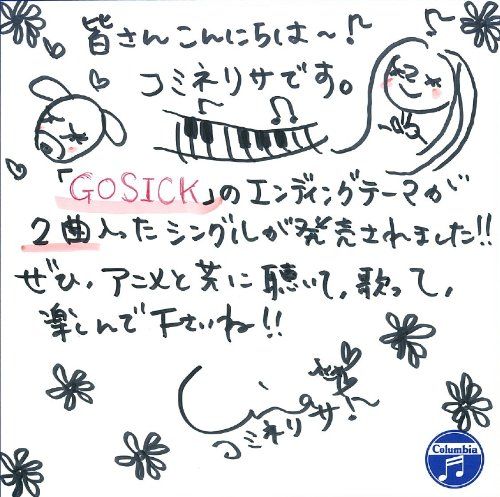 皆さんこんにちは～!
コミネリサです。
「GOSICK」のエンディングテーマが
2曲入ったシングルが発売されました!!
ぜひ、アニメと共に聴いて、歌って、
楽しんで下さいね!!
Lisa
コミネリサ!
Columbia